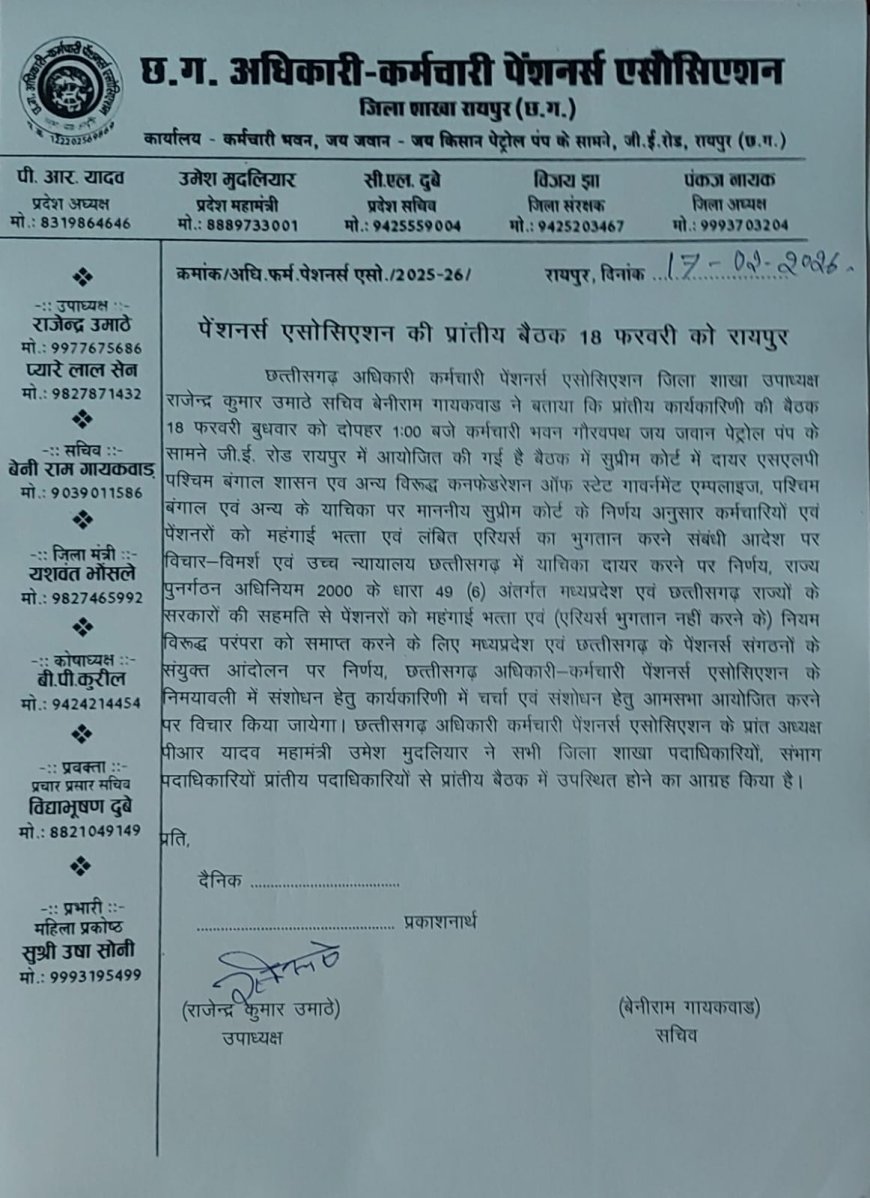 छ.ग. अधिकारी-कर्मचारी पेंशनर्स एसोसिएशन
जिला शाखा रायपुर (छ.ग.)
कार्यालय - कर्मचारी भवन, जय जवान - जय किसान पेट्रोल पंप के सामने, जी.ई.रोड, रायपुर (छ.ग.)
पी. आर. यादव
प्रदेश अध्यक्ष
मो.: 8319864646
उमेश मुदलियार
प्रदेश महामंत्री
मो.: 8889733001
सी.एल. दुबे
प्रदेश सचिव
मो.: 9425559004
विजय झा
जिला संरक्षक
मो.: 9425203467
पंकज नायक
जिला अध्यक्ष
मो.: 9993703204
-:: उपाध्यक्ष ::-
राजेन्द्र उमाठे
मो.: 9977675686
प्यारे लाल सेन
मो.: 9827871432
-:: सचिव ::-
बेनी राम गायकवाड़
मो.: 9039011586
-:: जिला मंत्री ::-
यशवंत भोंसले
मो.: 9827465992
-:: कोषाध्यक्ष ::-
बी.पी.कुरील
मो.: 9424214454
-:: प्रवक्ता ::-
प्रचार प्रसार सचिव
विद्याभूषण दुबे
मो.: 8821049149
-:: प्रभारी ::-
महिला प्रकोष्ठ
सुश्री उषा सोनी
मो.: 9993195499
क्रमांक/अधि.फर्म.पेशनर्स एसो./2025-26/ रायपुर, दिनांक 17-02-2026.
पेंशनर्स एसोसिएशन की प्रांतीय बैठक 18 फरवरी को रायपुर
छत्तीसगढ़ अधिकारी कर्मचारी पेंशनर्स एसोसिएशन जिला शाखा उपाध्यक्ष
राजेन्द्र कुमार उमाठे सचिव बेनीराम गायकवाड ने बताया कि प्रांतीय कार्यकारिणी की बैठक
18 फरवरी बुधवार को दोपहर 1:00 बजे कर्मचारी भवन गौरवपथ जय जवान पेट्रोल पंप के
सामने जी.ई. रोड रायपुर में आयोजित की गई है बैठक में सुप्रीम कोर्ट में दायर एसएलपी
पश्चिम बंगाल शासन एव अन्य विरूद्ध कनफेडरेशन ऑफ स्टेट गावर्नमेंट एम्पलाइज, पश्चिम
बंगाल एवं अन्य के याचिका पर माननीय सुप्रीम कोर्ट के निर्णय अनुसार कर्मचारियों एवं
पेंशनरों को महंगाई भत्ता एवं लंबित एरियर्स का भुगतान करने संबंधी आदेश पर
विचार–विमर्श एवं उच्च न्यायालय छत्तीसगढ़ में याचिका दायर करने पर निर्णय, राज्य
पुनर्गठन अधिनियम 2000 के धारा 49 (6) अंतर्गत मध्यप्रदेश एवं छत्तीसगढ़ राज्यों के
सरकारों की सहमति से पेंशनरों को महंगाई भत्ता एवं (एरियर्स भुगतान नहीं करने के) नियम
विरूद्ध परंपरा को समाप्त करने के लिए मध्यप्रदेश एवं छत्तीसगढ़ के पेंशनर्स संगठनों के
संयुक्त आंदोलन पर निर्णय, छत्तीसगढ़ अधिकारी–कर्मचारी पेंशनर्स एसोसिएशन के
निमयावली में संशोधन हेतु कार्यकारिणी में चर्चा एवं संशोधन हेतु आमसभा आयोजित करने
पर विचार किया जायेगा। छत्तीसगढ़ अधिकारी कर्मचारी पेंशनर्स एसोसिएशन के प्रांत अध्यक्ष
पीआर यादव महामंत्री उमेश मुदलियार ने सभी जिला शाखा पदाधिकारियों, संभाग
पदाधिकारियों प्रांतीय पदाधिकारियों से प्रांतीय बैठक में उपस्थित होने का आग्रह किया है।
प्रति,
दैनिक ....................................
................................................ प्रकाशनार्थ
(राजेन्द्र कुमार उमाठे)
उपाध्यक्ष
(बेनीराम गायकवाड)
सचिव